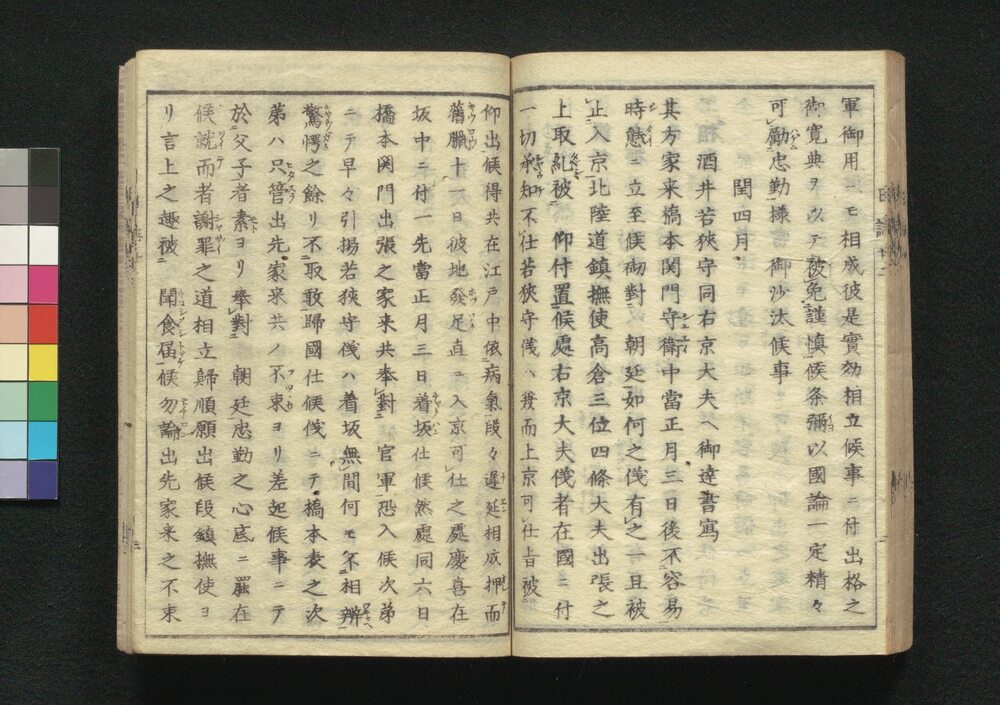 軍御用ニモ相成彼是實効相立候事ニ付出格之
御寛典ヲ以テ被免謹愼候条彌以國論一定精々
可勵忠勤様 御沙汰候事
閏四月
酒井若狹守同右京大夫ヘ御達書寫
其方家来橋本関門守衛中當正月三日後不容易
時態ニ立至候砌對 朝廷如何之儀有之一旦被
止入京北陸道鎮撫使高倉三位四條大夫出張之
上取糺被 仰付置候處右京大夫儀者在國ニ付
一切承知不仕若狹守儀ハ兼而上京可仕旨被
仰出候得共在江戸中依病氣段々遲延相成押而
舊臘十一日彼地發足直ニ入京可仕之處慶喜在
坂中ニ付一先當正月三日着坂仕候然處同六日
橋本関門出張之家来共奉對 官軍恐入候次弟
ニテ早々引揚若狹守儀ハ着坂無間何モ不相辨
驚愕之餘リ不取敢歸國仕候儀ニテ橋本表之次
弟ハ只管出先家来共ノ不束ヨリ差起候事ニテ
於父子者素ヨリ奉對 朝廷忠勤之心底ニ罷在
候就而者謝罪之道相立歸順願出候段鎮撫使ヨ
リ言上之趣被 聞食届候勿論出先家来之不束